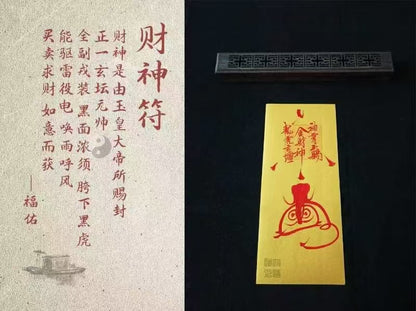 财神符
财神是由玉皇大帝所赐封
正一玄坛元帅
全副戎装 黑面浓须 胯下黑虎
能驱雷役电 唤雨呼风
买卖求财 如意而获
——福佑